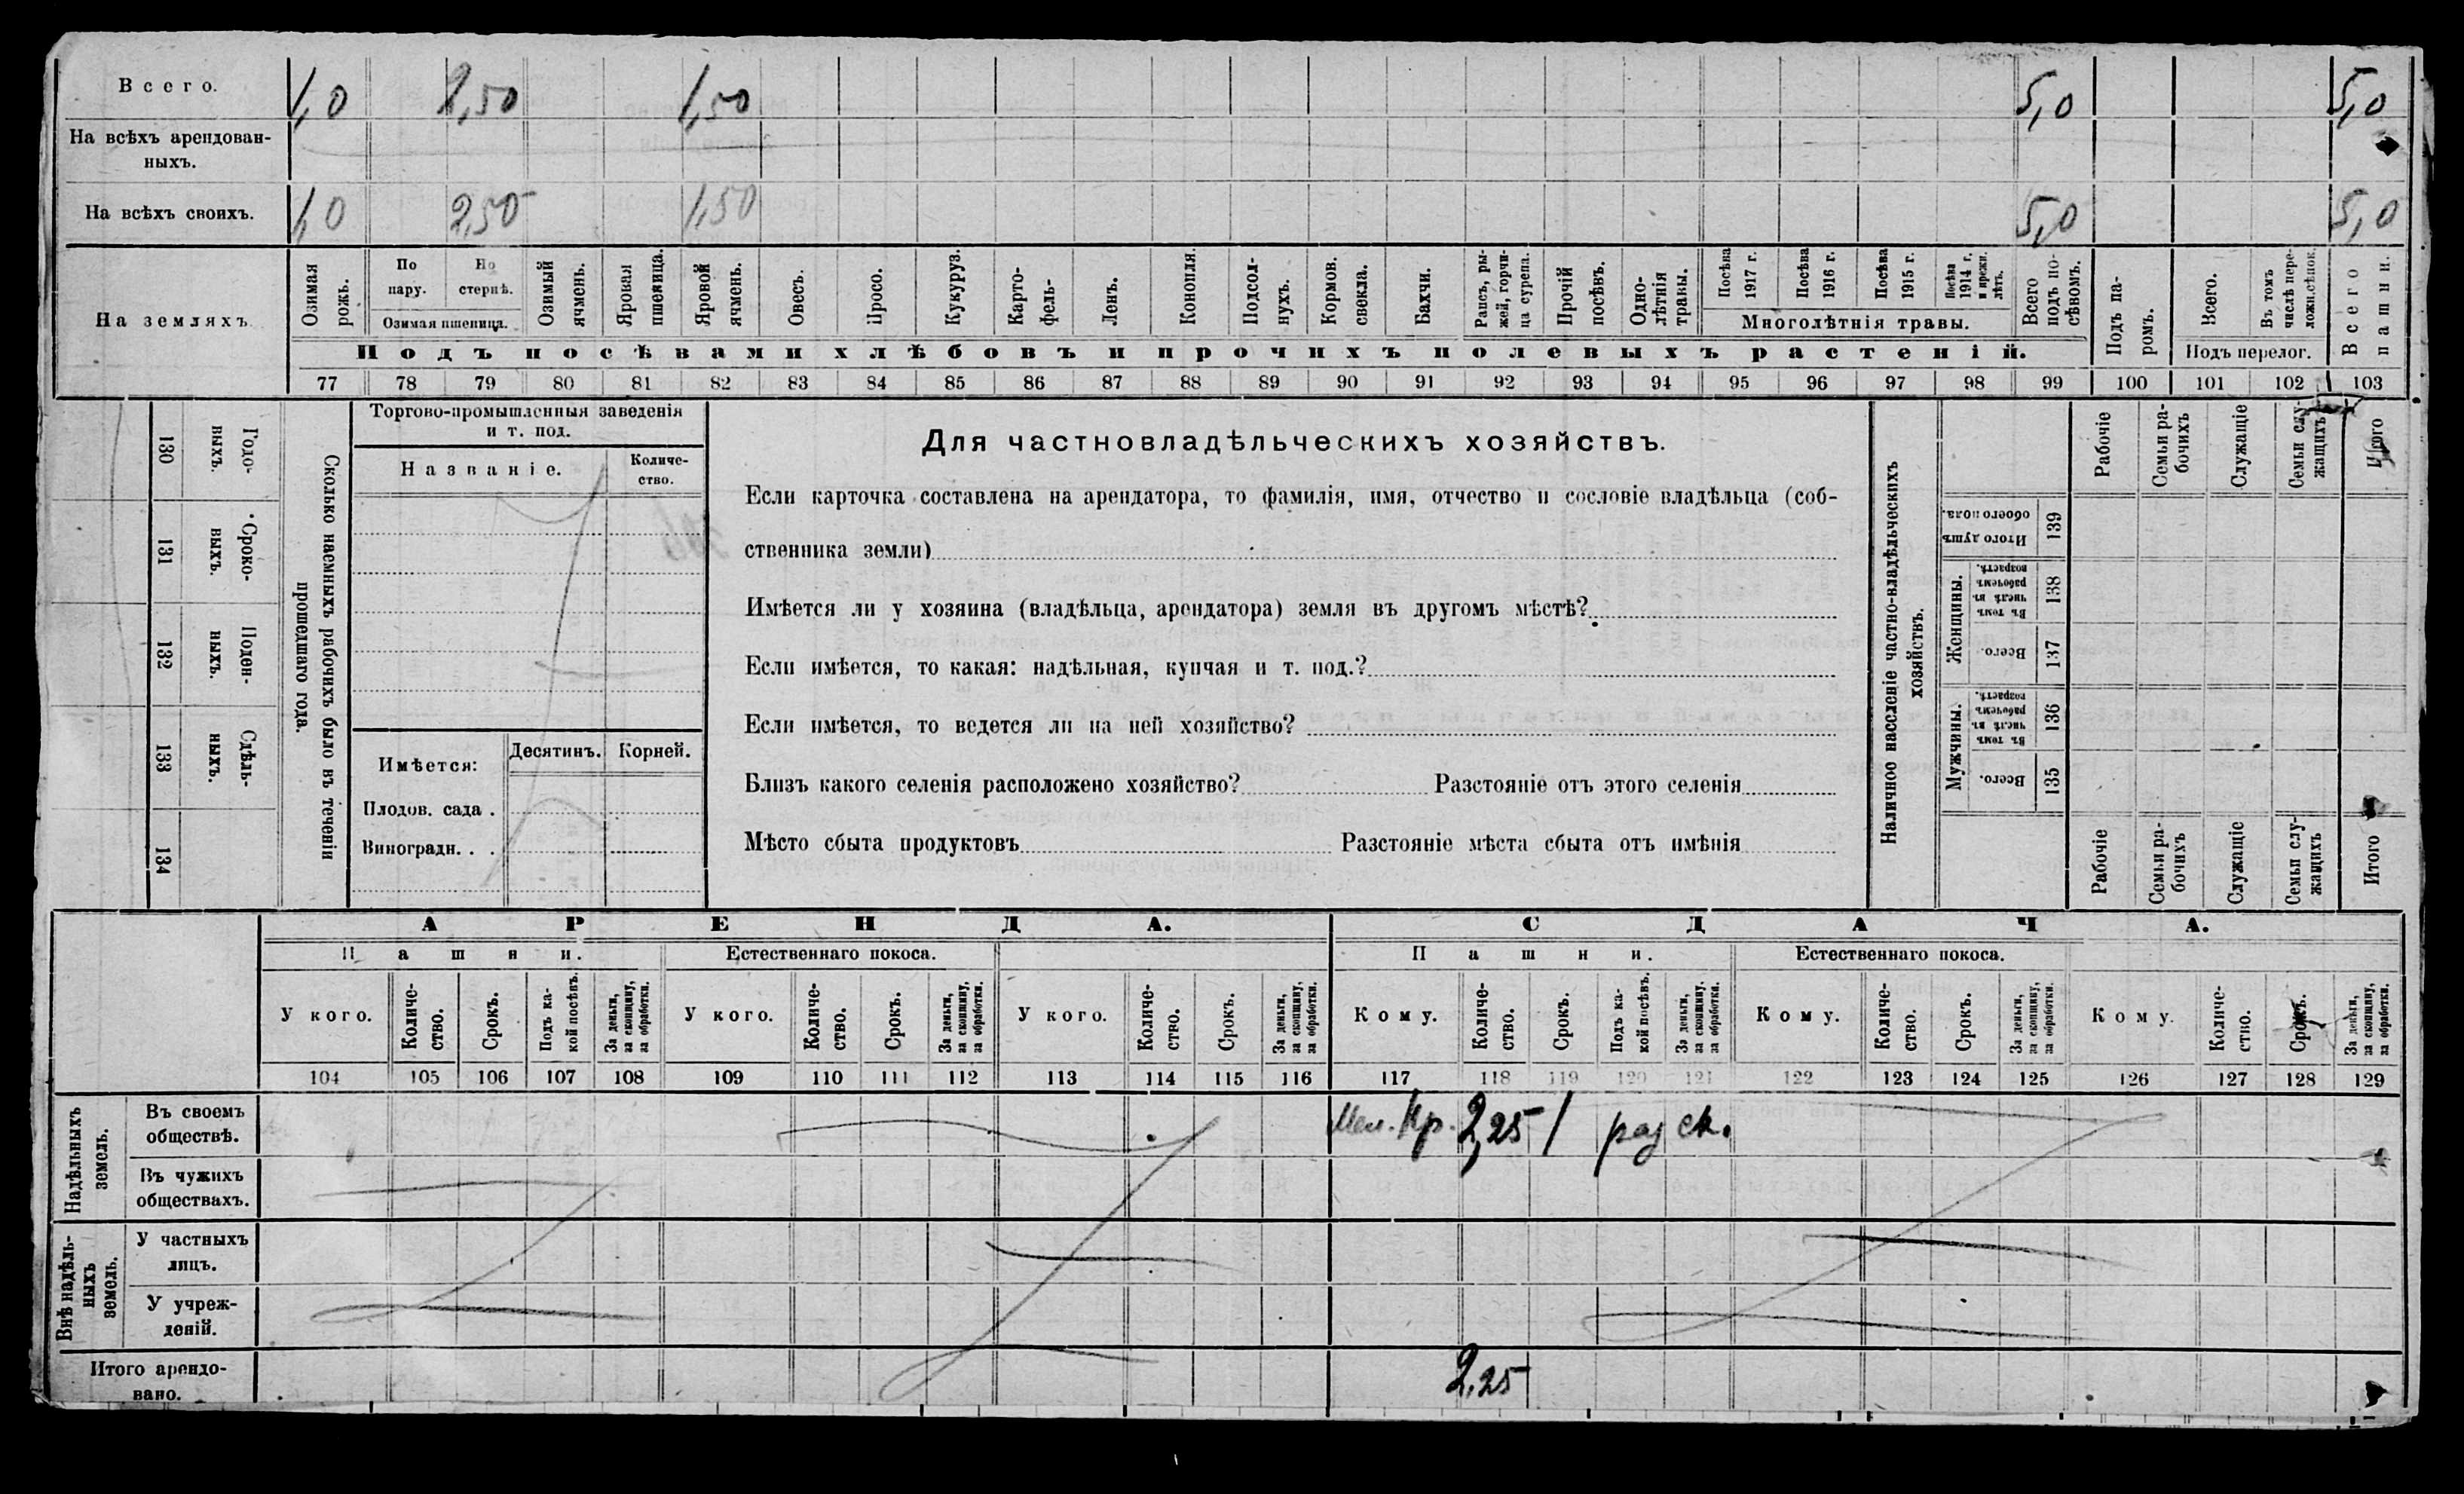 Всего. 1,0 2,50 1,50 5,0 5,0
На всѣхъ арендован-
ныхъ.
На всѣхъ своихъ. 1,0 2,50 1,50 5,0 5,0
На земляхъ
Озимая рожь.
По пару.
По стернѣ.
Озимая пшеница.
Озимый ячмень.
Яровая пшеница.
Яровой ячмень.
Овесъ.
Просо.
Кукуруз.
Карто-
фель-
Ленъ.
Конопля.
Подсол-
нухъ.
Кормов.
свекла.
Бахчи.
Рапсъ, ры-
жей, горчи-
ца сурепа.
Прочій
посѣвъ.
Одно-
лѣтнія
травы.
Посѣва
1917 г.
Посѣва
1916 г.
Посѣва
1915 г.
Посѣва
1914 г.
и прежн.
лѣтъ.
Многолѣтнія травы.
Всего
подъ по-
сѣвомъ.
Подъ па-
ромъ.
Всего.
Въ томъ
числѣ пере-
ложн.сѣнок.
Подъ перелог.
Всего
пашни.
Подъ посѣвами хлѣбовъ и прочихъ полевыхъ растеній.
77 78 79 80 81 82 83 84 85 86 87 88 89 90 91 92 93 94 95 96 97 98 99 100 101 102 103
Сколько наемныхъ рабочихъ было въ теченіи
прошедшаго года.
Годо-
выхъ.
130
Сроко-
выхъ.
131
Поден-
ныхъ.
132
Сдѣль-
ныхъ.
133
134
Торгово-промышленныя заведенія
и т. под.
Названіе.
Количе-
ство.
Имѣется:
Десятинъ. Корней.
Плодов. сада .
Виноградн. . .
Для частновладѣльческихъ хозяйствъ.
Если карточка составлена на арендатора, то фамилія, имя, отчество и сословіе владѣльца (соб-
ственника земли)
Имѣется ли у хозяина (владѣльца, арендатора) земля въ другомъ мѣстѣ?
Если имѣется, то какая: надѣльная, купчая и т. под.?
Если имѣется, то ведется ли на ней хозяйство?
Близъ какого селенія расположено хозяйство? Разстояніе отъ этого селенія
Мѣсто сбыта продуктовъ Разстояніе мѣста сбыта отъ имѣнія
Наличное населеніе частно-владѣльческихъ
хозяйствъ.
Рабочіе
Семьи ра-
бочихъ
Служащіе
Семьи слу-
жащихъ
Итого
Итого душъ
обоего пола.
139
Женщины.
Въ томъ
числѣ въ
рабочемъ
возрастѣ.
138
Всего.
137
Мужчины.
Въ томъ
числѣ въ
рабочемъ
возрастѣ.
136
Всего.
135
Рабочіе
Семьи ра-
бочихъ
Служащіе
Семьи слу-
жащихъ
Итого
АРЕНДА. СДАЧА.
Пашни. Естественнаго покоса. Пашни. Естественнаго покоса.
У кого.
Количе-
ство.
Срокъ.
Подъ ка-
кой посѣвъ.
За деньги,
за скопщину,
за обработки.
У кого.
Количе-
ство.
Срокъ.
За деньги,
за скопщину,
за обработки.
У кого.
Количе-
ство.
Срокъ.
За деньги,
за скопщину,
за обработки.
Кому.
Количе-
ство.
Срокъ.
Подъ ка-
кой посѣвъ.
За деньги,
за скопщину,
за обработки.
Кому.
Количе-
ство.
Срокъ.
За деньги,
за скопщину,
за обработки.
Кому.
Количе-
ство.
Срокъ.
За деньги,
за скопщину,
за обработки.
104 105 106 107 108 109 110 111 112 113 114 115 116 117 118 119 120 121 122 123 124 125 126 127 128 129
Надѣльныхъ
земель.
Въ своемъ
обществѣ.
Кр. 2,25 1 ск.
Въ чужихъ
обществахъ.
Внѣ надѣль-
ныхъ
земель.
У частныхъ
лицъ.
У учреж-
деній.
Итого арендо-
вано.
2,25